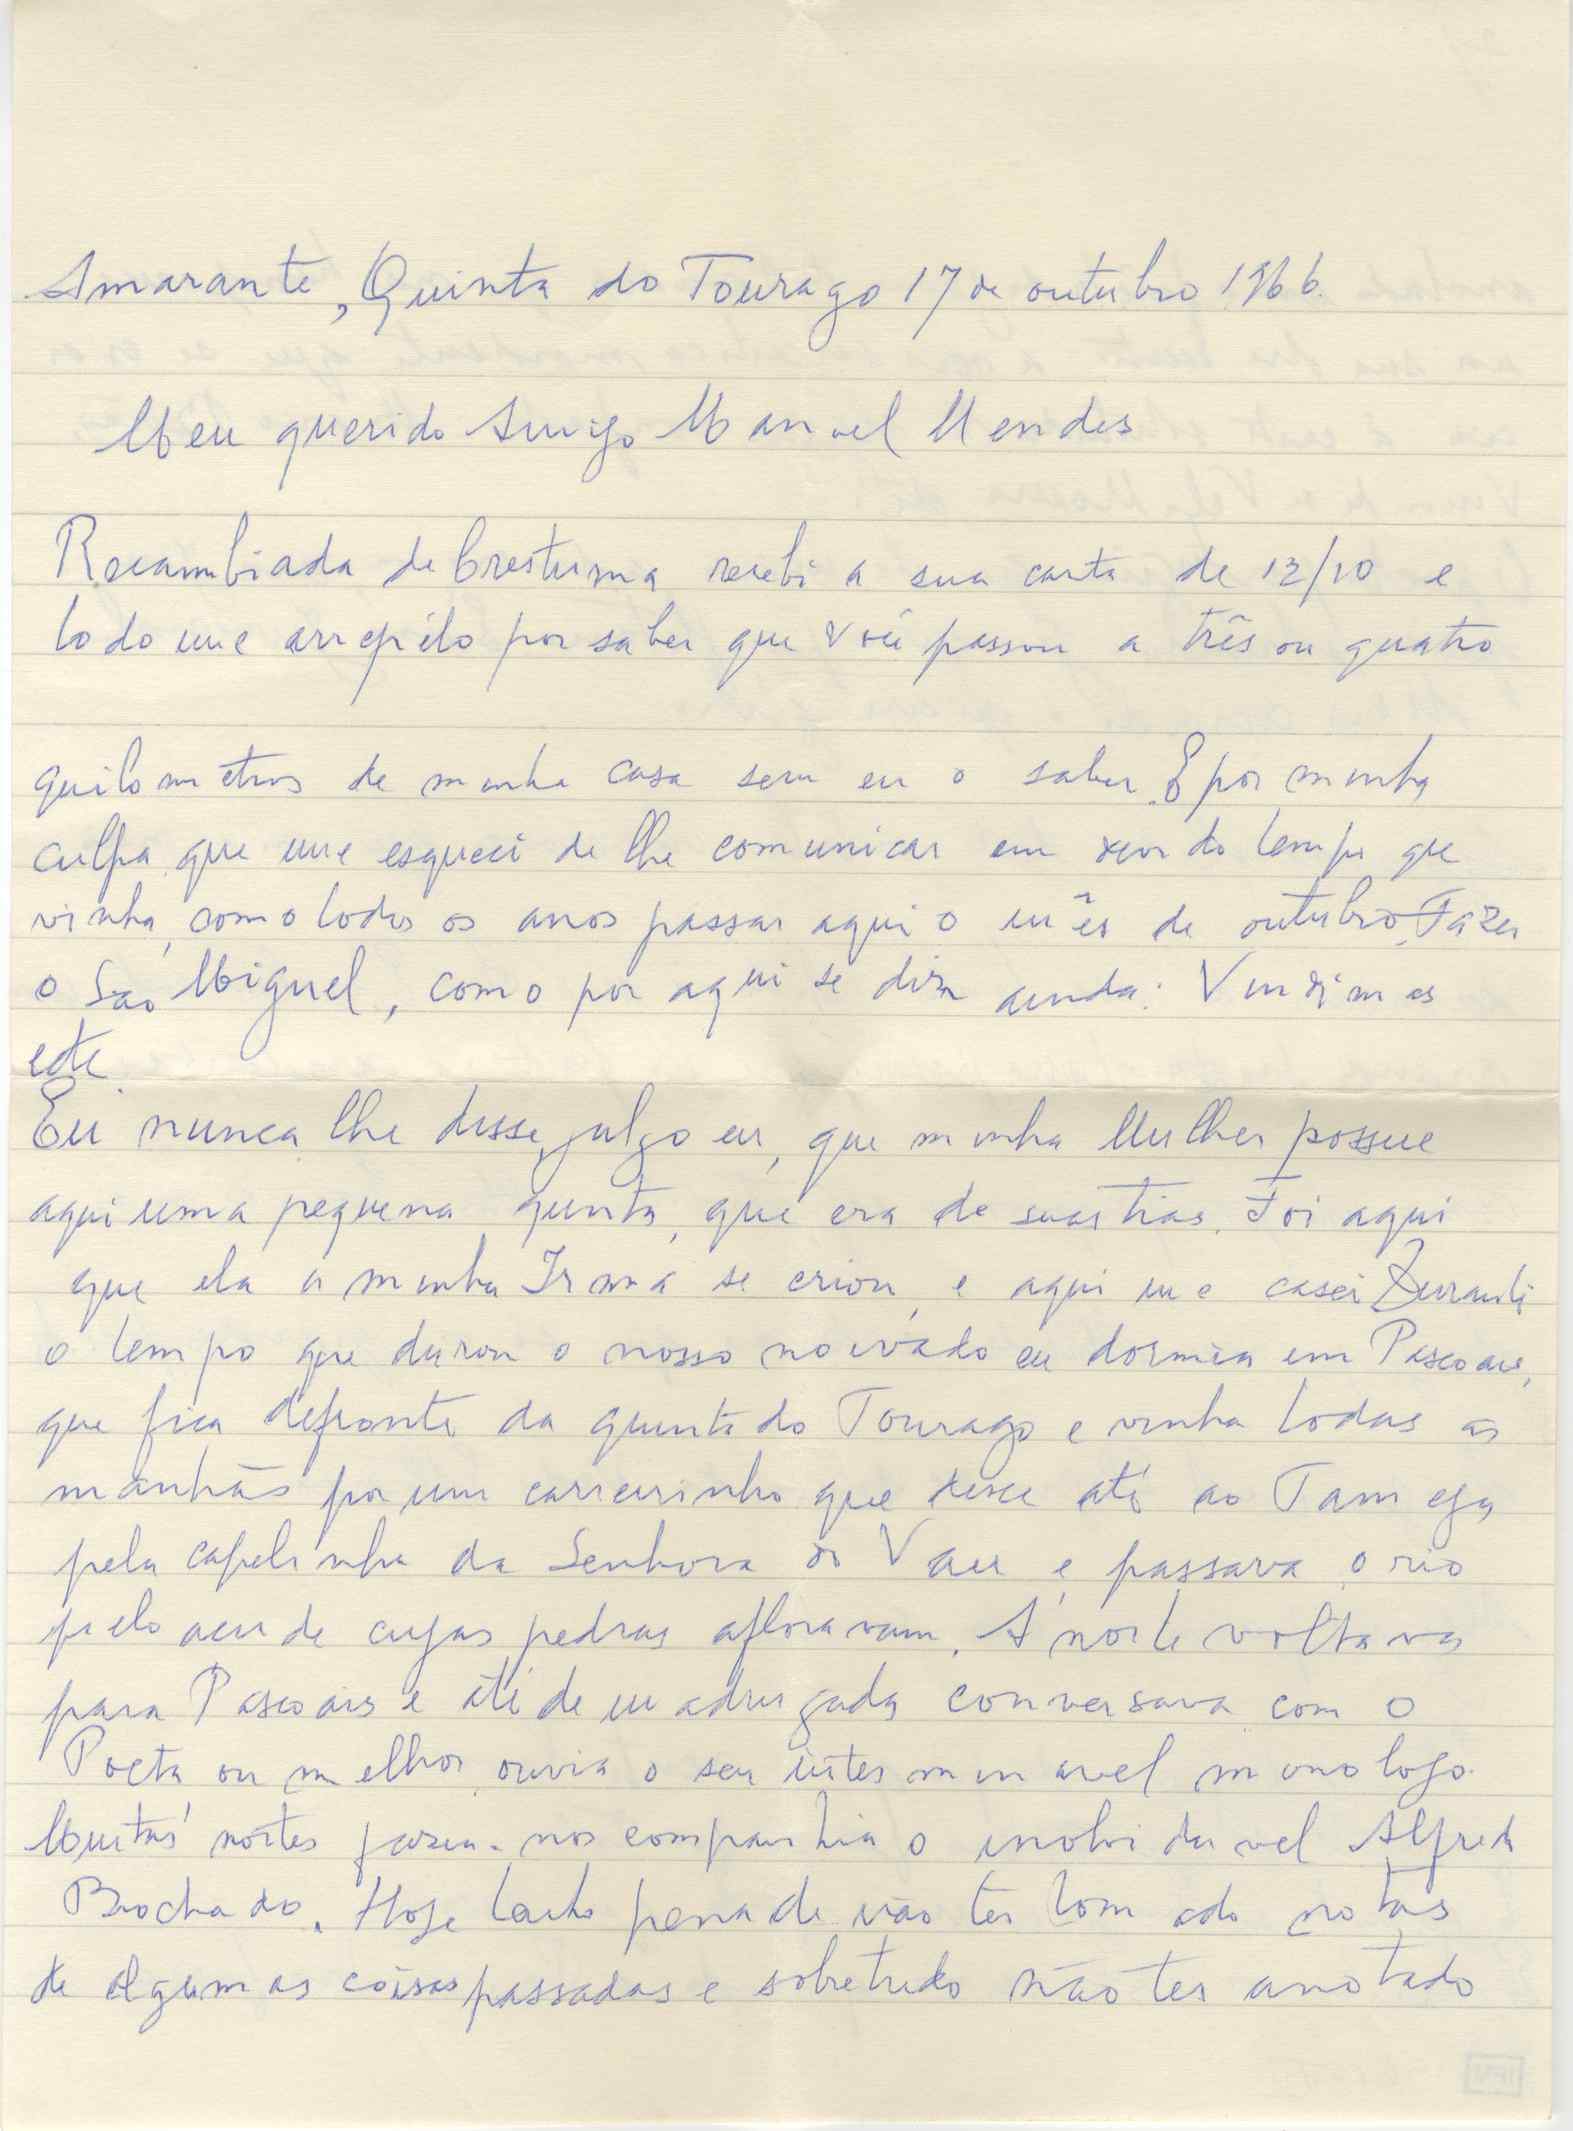 Amarante, Quinta do Tourago 17 de outubro 1966.
Meu querido Amigo Manuel Mendes
Recambiada de Crestuma recebi a sua carta de 12/10 e
todo me arrepélo por saber que você passou a três ou quatro
quilometros de minha casa sem eu o saber. E por minha
culpa, que me esqueci de lhe comunicar em devido tempo que
vinha, como todos os anos passar aqui o mês de outubro. Fazer
o São Miguel, como por aqui se diz ainda: Vindimas
etc.
Eu nunca lhe disse, julgo eu, que minha Mulher possue
aqui uma pequena quinta, que era de suas tias. Foi aqui
que ela a minha Irmã se criou, e aqui me casei. Durante
o tempo que durou o nosso noivado eu dormia em Pascoaes,
que fica defronte da quinta do Tourago e vinha todas as
manhãs por um carreirinho que desce até ao Tamega
pela capelinha da Senhora do Vau e, passava o rio
pelo acude cujas pedras afloravam. Á noite voltava
para Pascoais e até de madrugada conversava com o
Poeta ou melhor, ouvia o seu interminavel monologo.
Muitas noites fazia-nos companhia o inolvidavel Alfredo
Brochado. Hoje tenho pena de não ter tomado notas
de algumas coisas passadas e sobretudo não ter anotado